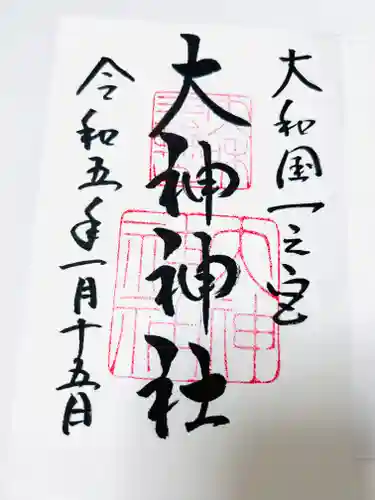 大和国一之宮
大神神社
令和五年一月十五日
大神
神社